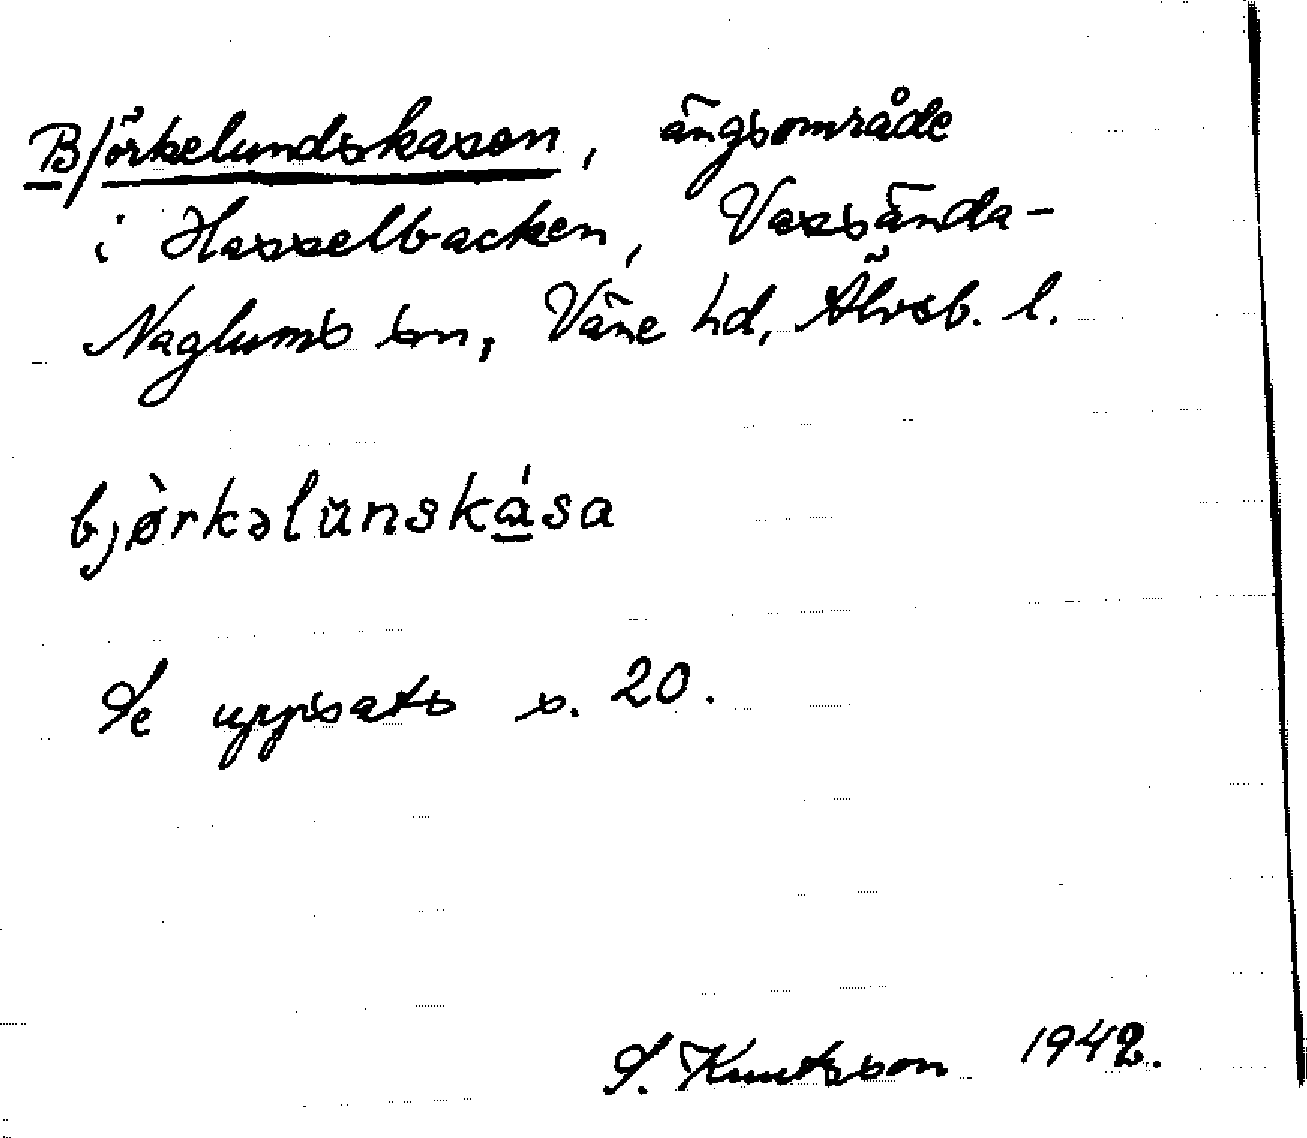 Björkelundskasen, ängsområde
i Hasselbacken, Vassända-
Naglums sn, Väne hd, Älvsb. l.
bjø̀rkəlŭnskása
Se uppsats s. 20.
S. Knutsson 1942.